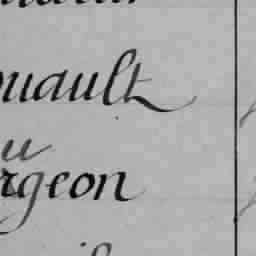 ouault
u
rgeon